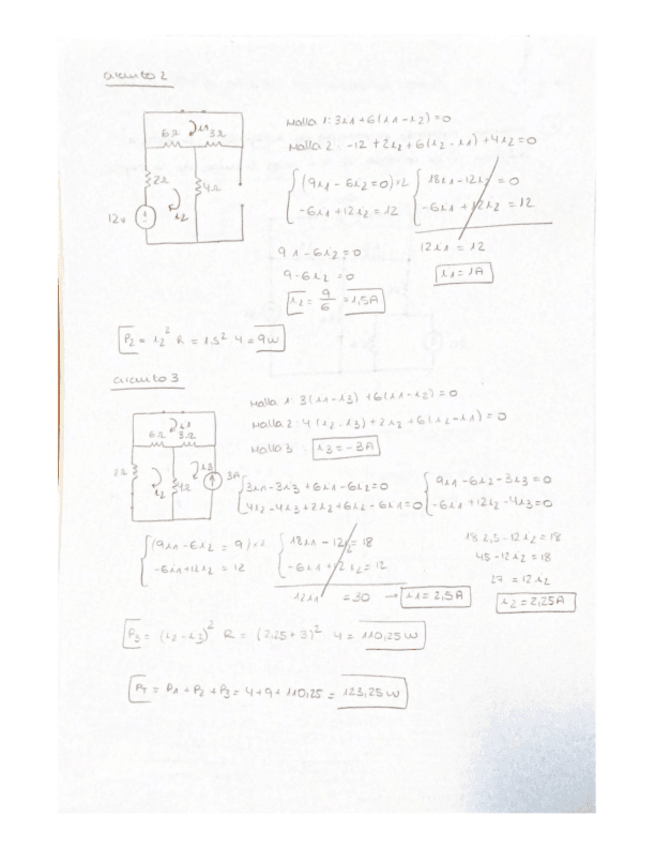 circuito 2
6Ω i1 3Ω
2Ω 4Ω
i2
12v
Malla 1: 3i1+6(i1-i2)=0
Malla 2: -12+2i2+6(i2-i1)+4i2=0
(9i1-6i2=0)×2 18i1-12i2=0
-6i1+12i2=12 -6i1+12i2=12
12i1=12
i1=1A
9·1-6i2=0
9-6i2=0
i2=9/6=1,5A
P2=i2² R=1,5² 4=9w
circuito 3
6Ω i1 3Ω
2Ω i2 4Ω i3 3A
Malla 1: 3(i1-i3)+6(i1-i2)=0
Malla 2: 4(i2-i3)+2i2+6(i2-i1)=0
Malla 3: i3=-3A
3i1-3i3+6i1-6i2=0 9i1-6i2-3i3=0
4i2-4i3+2i2+6i2-6i1=0 -6i1+12i2-4i3=0
(9i1-6i2=9)×2 18i1-12i2=18
-6i1+12i2=12 -6i1+12i2=12
12i1=30 → i1=2,5A
18 2,5-12i2=18
45-12i2=18
27=12i2
i2=2,25A
P3=(i2-i3)² R=(2,25+3)² 4=110,25w
PT=P1+P2+P3=4+9+110,25=123,25w